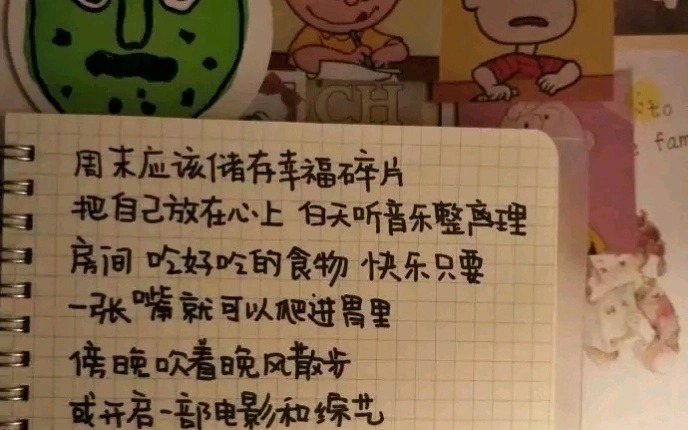 CH
to
fam
周末应该储存幸福碎片
把自己放在心上 白天听音乐整离理
房间 吃好吃的食物 快乐只要
一张嘴就可以爬进胃里
傍晚吹着晚风散步
或开启一部电影和综艺